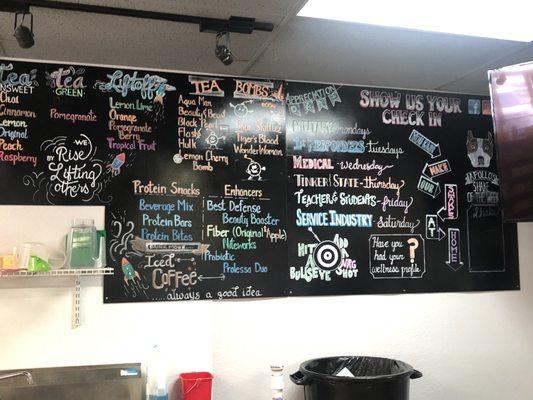 Tea
UNSWEET
Chai
Cinnamon
Lemon
Original
Peach
Raspberry
Tea
GREEN
Pomegranate
We
RISE
By
Lifting
others
Liftoff
Lemon Lime
Orange
Pomegranate
Berry
Tropical Fruit
TEA BOMBS
Aqua Man
Beauty &
Beast
Black
Flash
Hulk
Lemon Cherry
Bomb
Skittles
Tigers Blood
Wonder
Woman
Protein Snacks
Beverage Mix
Protein Bars
Protein Bites
Iced
Coffee
...always a good idea
Enhancers
Best Defense
Beauty Booster
Fiber (Original & Apple)
Niteworks
Probiotic
Prolessa Duo
APPRECIATION
DAYS
MILITARY mondays
1st RESPONDERS Tuesdays
MEDICAL wednesday
TINKER/STATE-Thursday
TEACHERS/STUDENTS-friday
SERVICE INDUSTRY
Saturday
HIT
THE
BULLSEYE
ADD
NRG
SHOT
SHOW US YOUR
CHECK IN
TUMBLER
MAKE
YOUR
A
SHAKE
TO GO
Have you
Had your
wellness profile
?
APOLLO'S
SHAKE
OF THE
WEEK